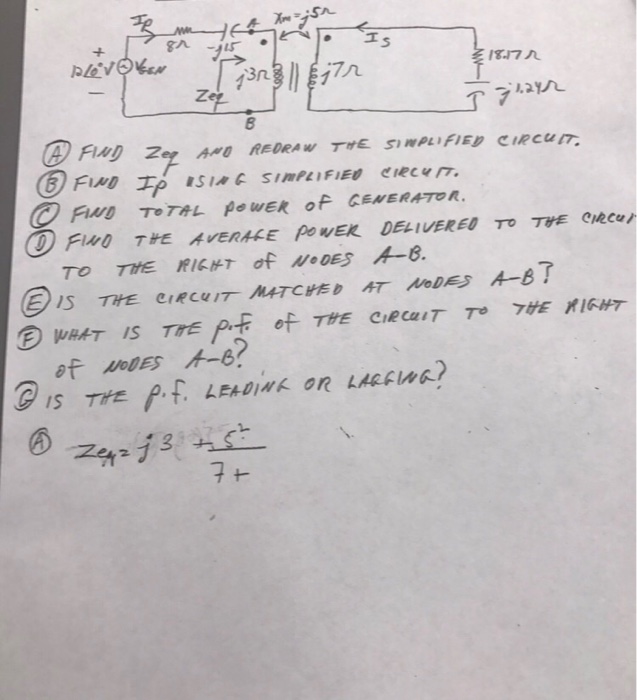 Ip
8Ω
-j15
A
Xm=j5Ω
Is
+
12∠0° V
VGEN
−
Zeq
j3Ω
j7Ω
18.17Ω
-j1.24Ω
B
(A) FIND Zeq AND REDRAW THE SIMPLIFIED CIRCUIT.
(B) FIND Ip USING SIMPLIFIED CIRCUIT.
(C) FIND TOTAL POWER OF GENERATOR.
(D) FIND THE AVERAGE POWER DELIVERED TO THE CIRCUI
TO THE RIGHT OF NODES A-B.
(E) IS THE CIRCUIT MATCHED AT NODES A-B?
(F) WHAT IS THE p.f. OF THE CIRCUIT TO THE RIGHT
OF NODES A-B?
(G) IS THE p.f. LEADING OR LAGGING?
(A) Zeq = j3 + 5²
7+